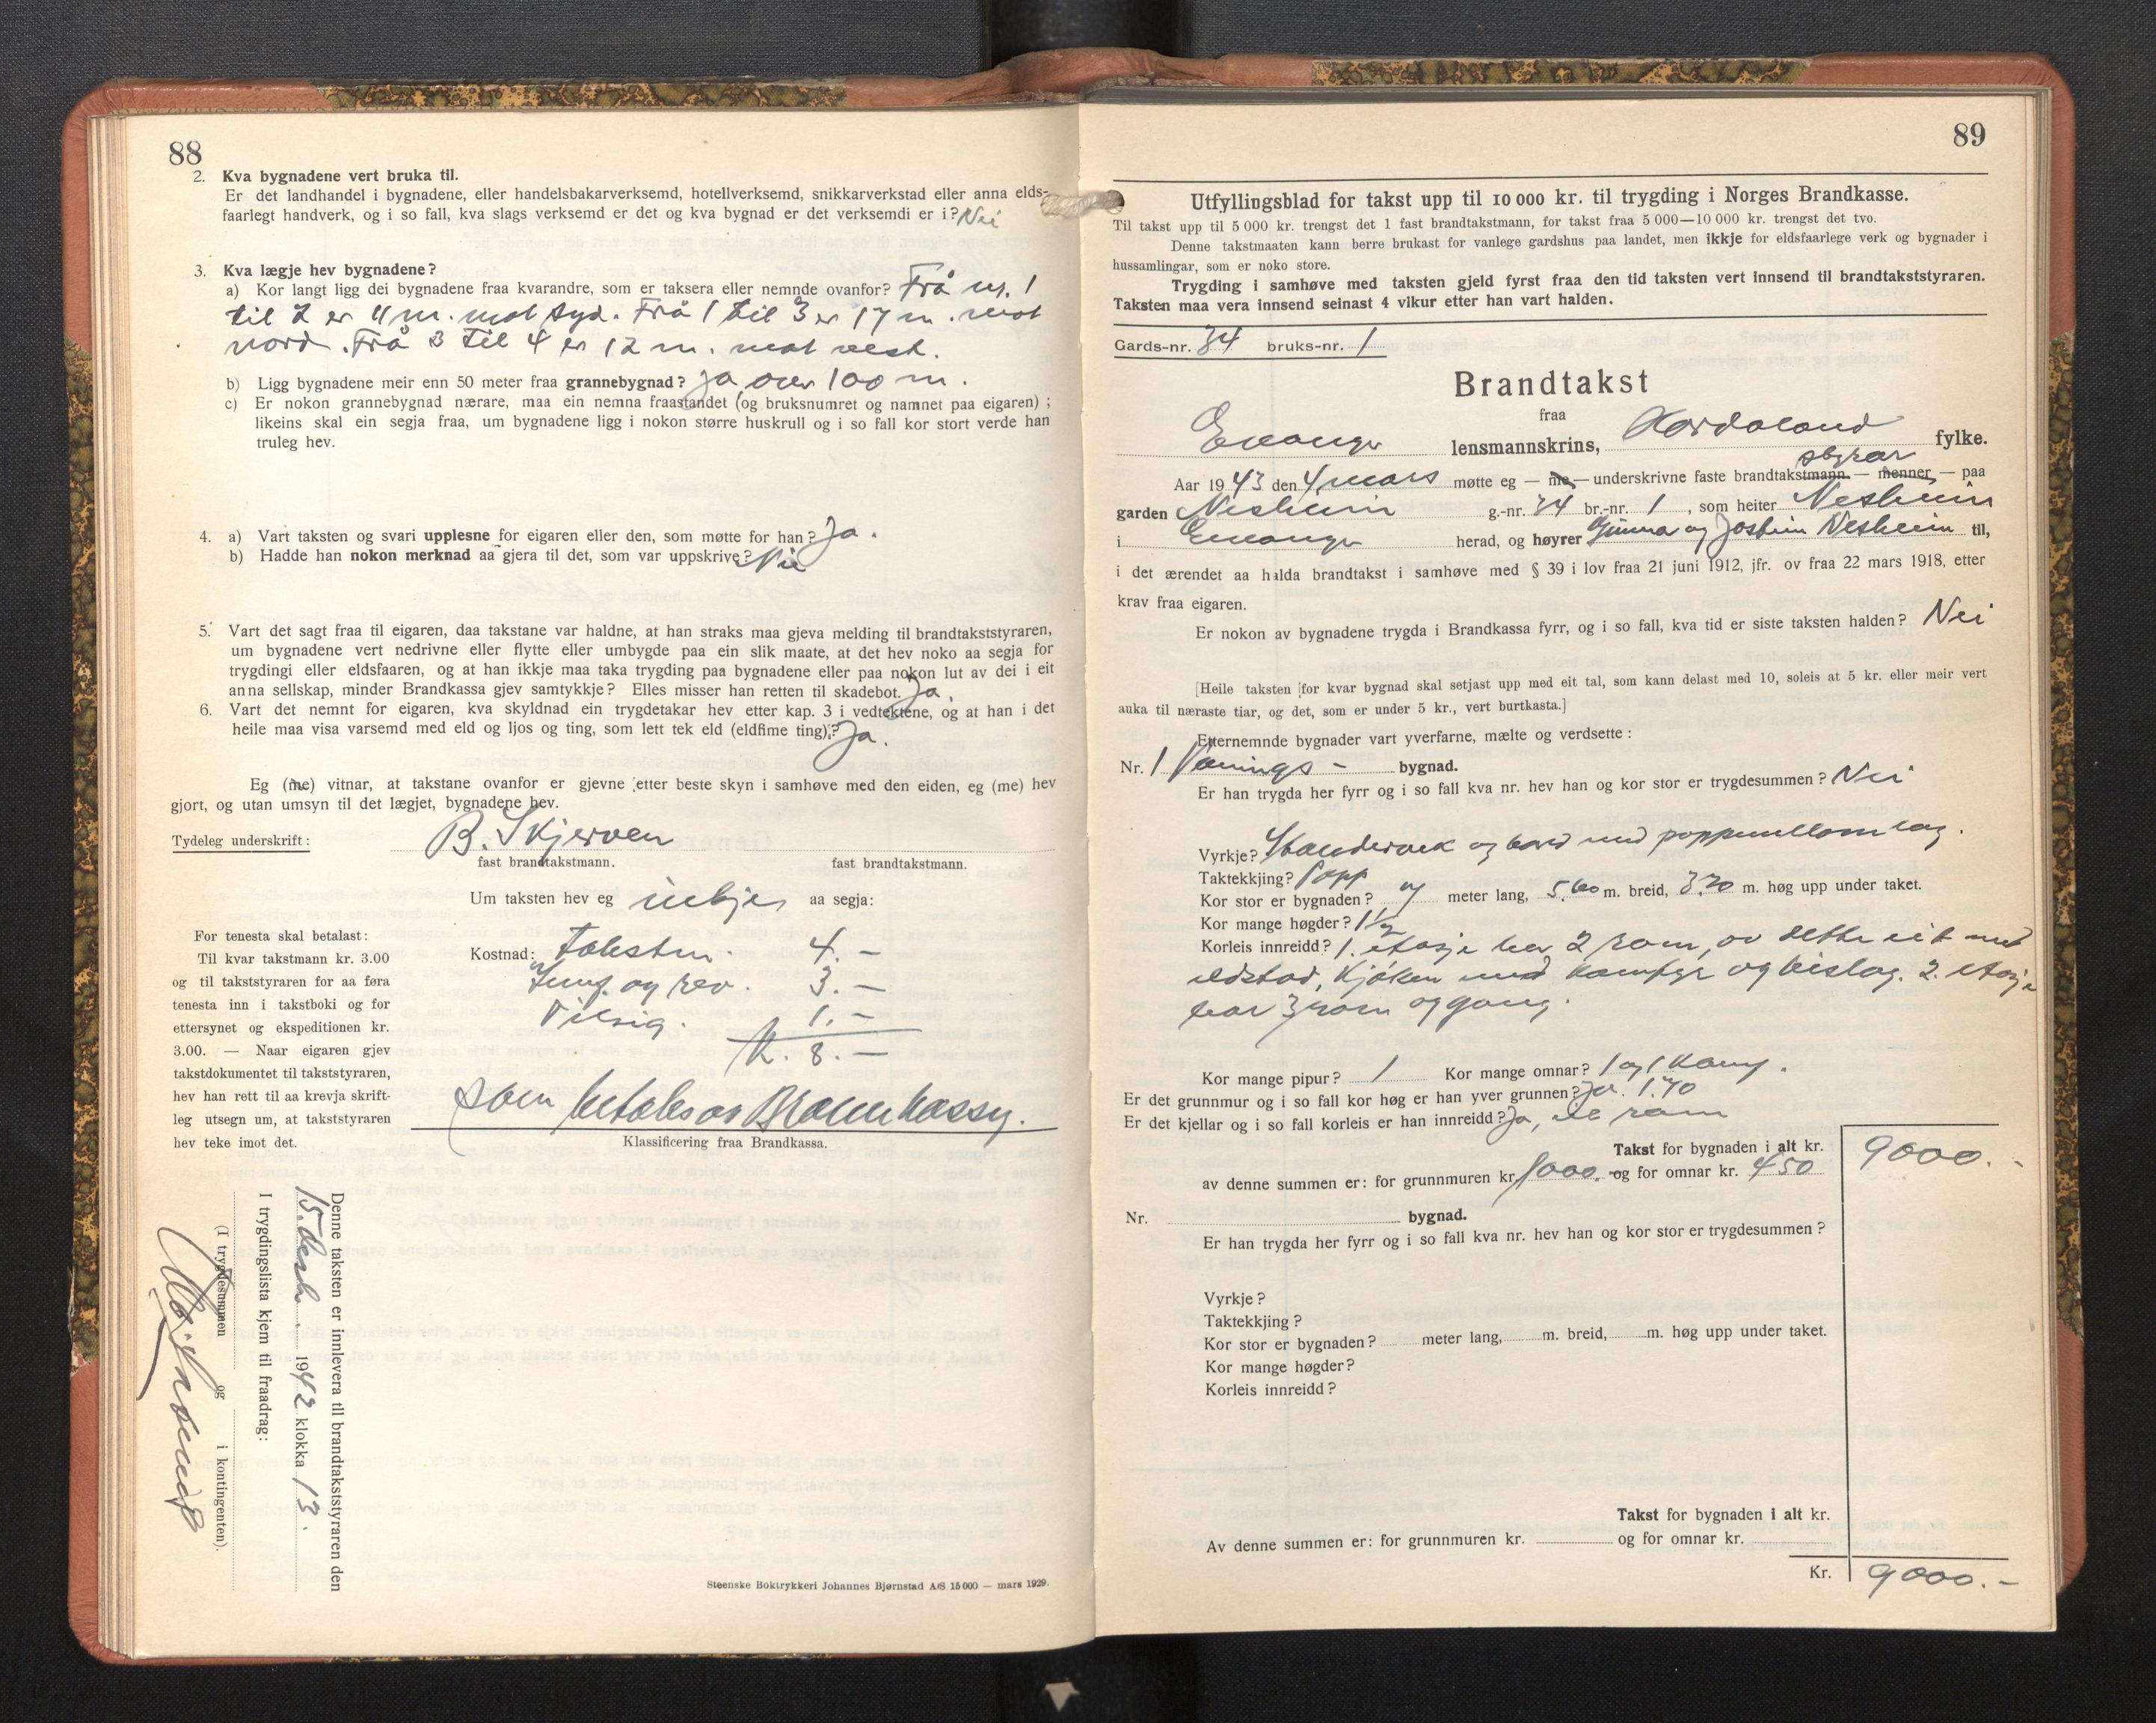 88
2. Kva bygnadene vert bruka til.
Er det landhandel i bygnadene, eller handelsbakarverksemd, hotellverksemd, snikkarverkstad eller anna elds-
faarlegt handverk, og i so fall, kva slags verksemd er det og kva bygnad er det verksemdi er i? Nei
3. Kva lægje hev bygnadene?
a) Kor langt ligg dei bygnadene fraa kvarandre, som er taksera eller nemnde ovanfor? Frå nr. 1
til 2 er 11 m. mot syd. Frå 1 til 3 er 17 m. mot
nord. Frå 3 til 4 er 12 m. mot vest.
b) Ligg bygnadene meir enn 50 meter fraa grannebygnad? Ja over 100 m.
c) Er nokon grannebygnad nærare, maa ein nemna fraastandet (og bruksnumret og namnet paa eigaren) ;
likeins skal ein segja fraa, um bygnadene ligg i nokon større huskrull og i so fall kor stort verde han
truleg hev.
4. a) Vart taksten og svari upplesne for eigaren eller den, som møtte for han? Ja.
b) Hadde han nokon merknad aa gjera til det, som var uppskrive? Nei
5. Vart det sagt fraa til eigaren, daa takstane var haldne, at han straks maa gjeva melding til brandtakststyraren,
um bygnadene vert nedrivne eller flytte eller umbygde paa ein slik maate, at det hev noko aa segja for
trygdingi eller eldsfaaren, og at han ikkje maa taka trygding paa bygnadene eller paa nokon lut av dei i eit
anna sellskap, minder Brandkassa gjev samtykkje? Elles misser han retten til skadebot. Ja.
6. Vart det nemnt for eigaren, kva skyldnad ein trygdetakar hev etter kap. 3 i vedtektene, og at han i det
heile maa visa varsemd med eld og ljos og ting, som lett tek eld (eldfime ting)? Ja.
Eg (me) vitnar, at takstane ovanfor er gjevne etter beste skyn i samhøve med den eiden, eg (me) hev
gjort, og utan umsyn til det lægjet, bygnadene hev.
Tydeleg underskrift: B. Skjerven
fast brandtakstmann. fast brandtakstmann.
Um taksten hev eg inkje aa segja:
For tenesta skal betalast:
Til kvar takstmann kr. 3.00
og til takststyraren for aa føra
tenesta inn i takstboki og for
ettersynet og ekspeditionen kr.
3.00. — Naar eigaren gjev
takstdokumentet til takststyraren,
hev han rett til aa krevja skrift-
leg utsegn um, at takststyraren
hev teke imot det.
Kostnad: Taksten. 4.-
og rev. 3.-
1.-
K. 8.-
som betales av Brannkassa.
Klassificering fraa Brandkassa.
Denne taksten er innlevera til brandtakststyraren den
15. desbr. 1942 klokka 13.
I trygdingslista kjem til fraadrag:
(I trygdesummen og i kontingenten).
Steenske Boktrykkeri Johannes Bjørnstad A/S 15 000 — mars 1929.
89
Utfyllingsblad for takst upp til 10 000 kr. til trygding i Norges Brandkasse.
Til takst upp til 5 000 kr. trengst det 1 fast brandtakstmann, for takst fraa 5 000—10 000 kr. trengst det tvo.
Denne takstmaaten kann berre brukast for vanlege gardshus paa landet, men ikkje for eldsfaarlege verk og bygnader i
hussamlingar, som er noko store.
Trygding i samhøve med taksten gjeld fyrst fraa den tid taksten vert innsend til brandtakststyraren.
Taksten maa vera innsend seinast 4 vikur etter han vart halden.
Gards-nr. 34 bruks-nr. 1
Brandtakst
fraa
Evanger lensmannskrins, Hordaland fylke.
styrar
Aar 1943 den 4 mars møtte eg — me — underskrivne faste brandtakstmann — menner — paa
garden Nesheim g.-nr. 34 br.-nr. 1, som heiter Nesheim
i Evanger herad, og høyrer Gunna og Jostein Nesheim til,
i det ærendet aa halda brandtakst i samhøve med § 39 i lov fraa 21 juni 1912, jfr. ov fraa 22 mars 1918, etter
krav fraa eigaren.
Er nokon av bygnadene trygda i Brandkassa fyrr, og i so fall, kva tid er siste taksten halden? Nei
[Heile taksten for kvar bygnad skal setjast upp med eit tal, som kann delast med 10, soleis at 5 kr. eller meir vert
auka til næraste tiar, og det, som er under 5 kr., vert burtkasta.]
Etternemnde bygnader vart yverfarne, mælte og verdsette :
Nr. 1 Vånings- bygnad.
Er han trygda her fyrr og i so fall kva nr. hev han og kor stor er trygdesummen? Nei
Vyrkje? Standerverk og bord med pappmellomlag.
Taktekkjing? Papp
Kor stor er bygnaden? 7 meter lang, 5,60 m. breid, 3.70 m. høg upp under taket.
Kor mange høgder? 1½
Korleis innreidd? 1. etasje har 2 rom, av dette eit med
eldstad, kjøken med komfyr og bislag. 2. etasje
har 3 rom og gang.
Kor mange pipur? 1 Kor mange omnar? 1 og 1 komf.
Er det grunnmur og i so fall kor høg er han yver grunnen? Ja. 1.70
Er det kjellar og i so fall korleis er han innreidd? Ja, eit rom
Takst for bygnaden i alt kr. 9000.-
av denne summen er: for grunnmuren kr. 1000. og for omnar kr. 450
Nr. bygnad.
Er han trygda her fyrr og i so fall kva nr. hev han og kor stor er trygdesummen?
Vyrkje?
Taktekkjing?
Kor stor er bygnaden? meter lang, m. breid, m. høg upp under taket.
Kor mange høgder?
Korleis innreidd?
Takst for bygnaden i alt kr.
Av denne summen er: for grunnmuren kr. og for omnar kr.
Kr. 9000.-